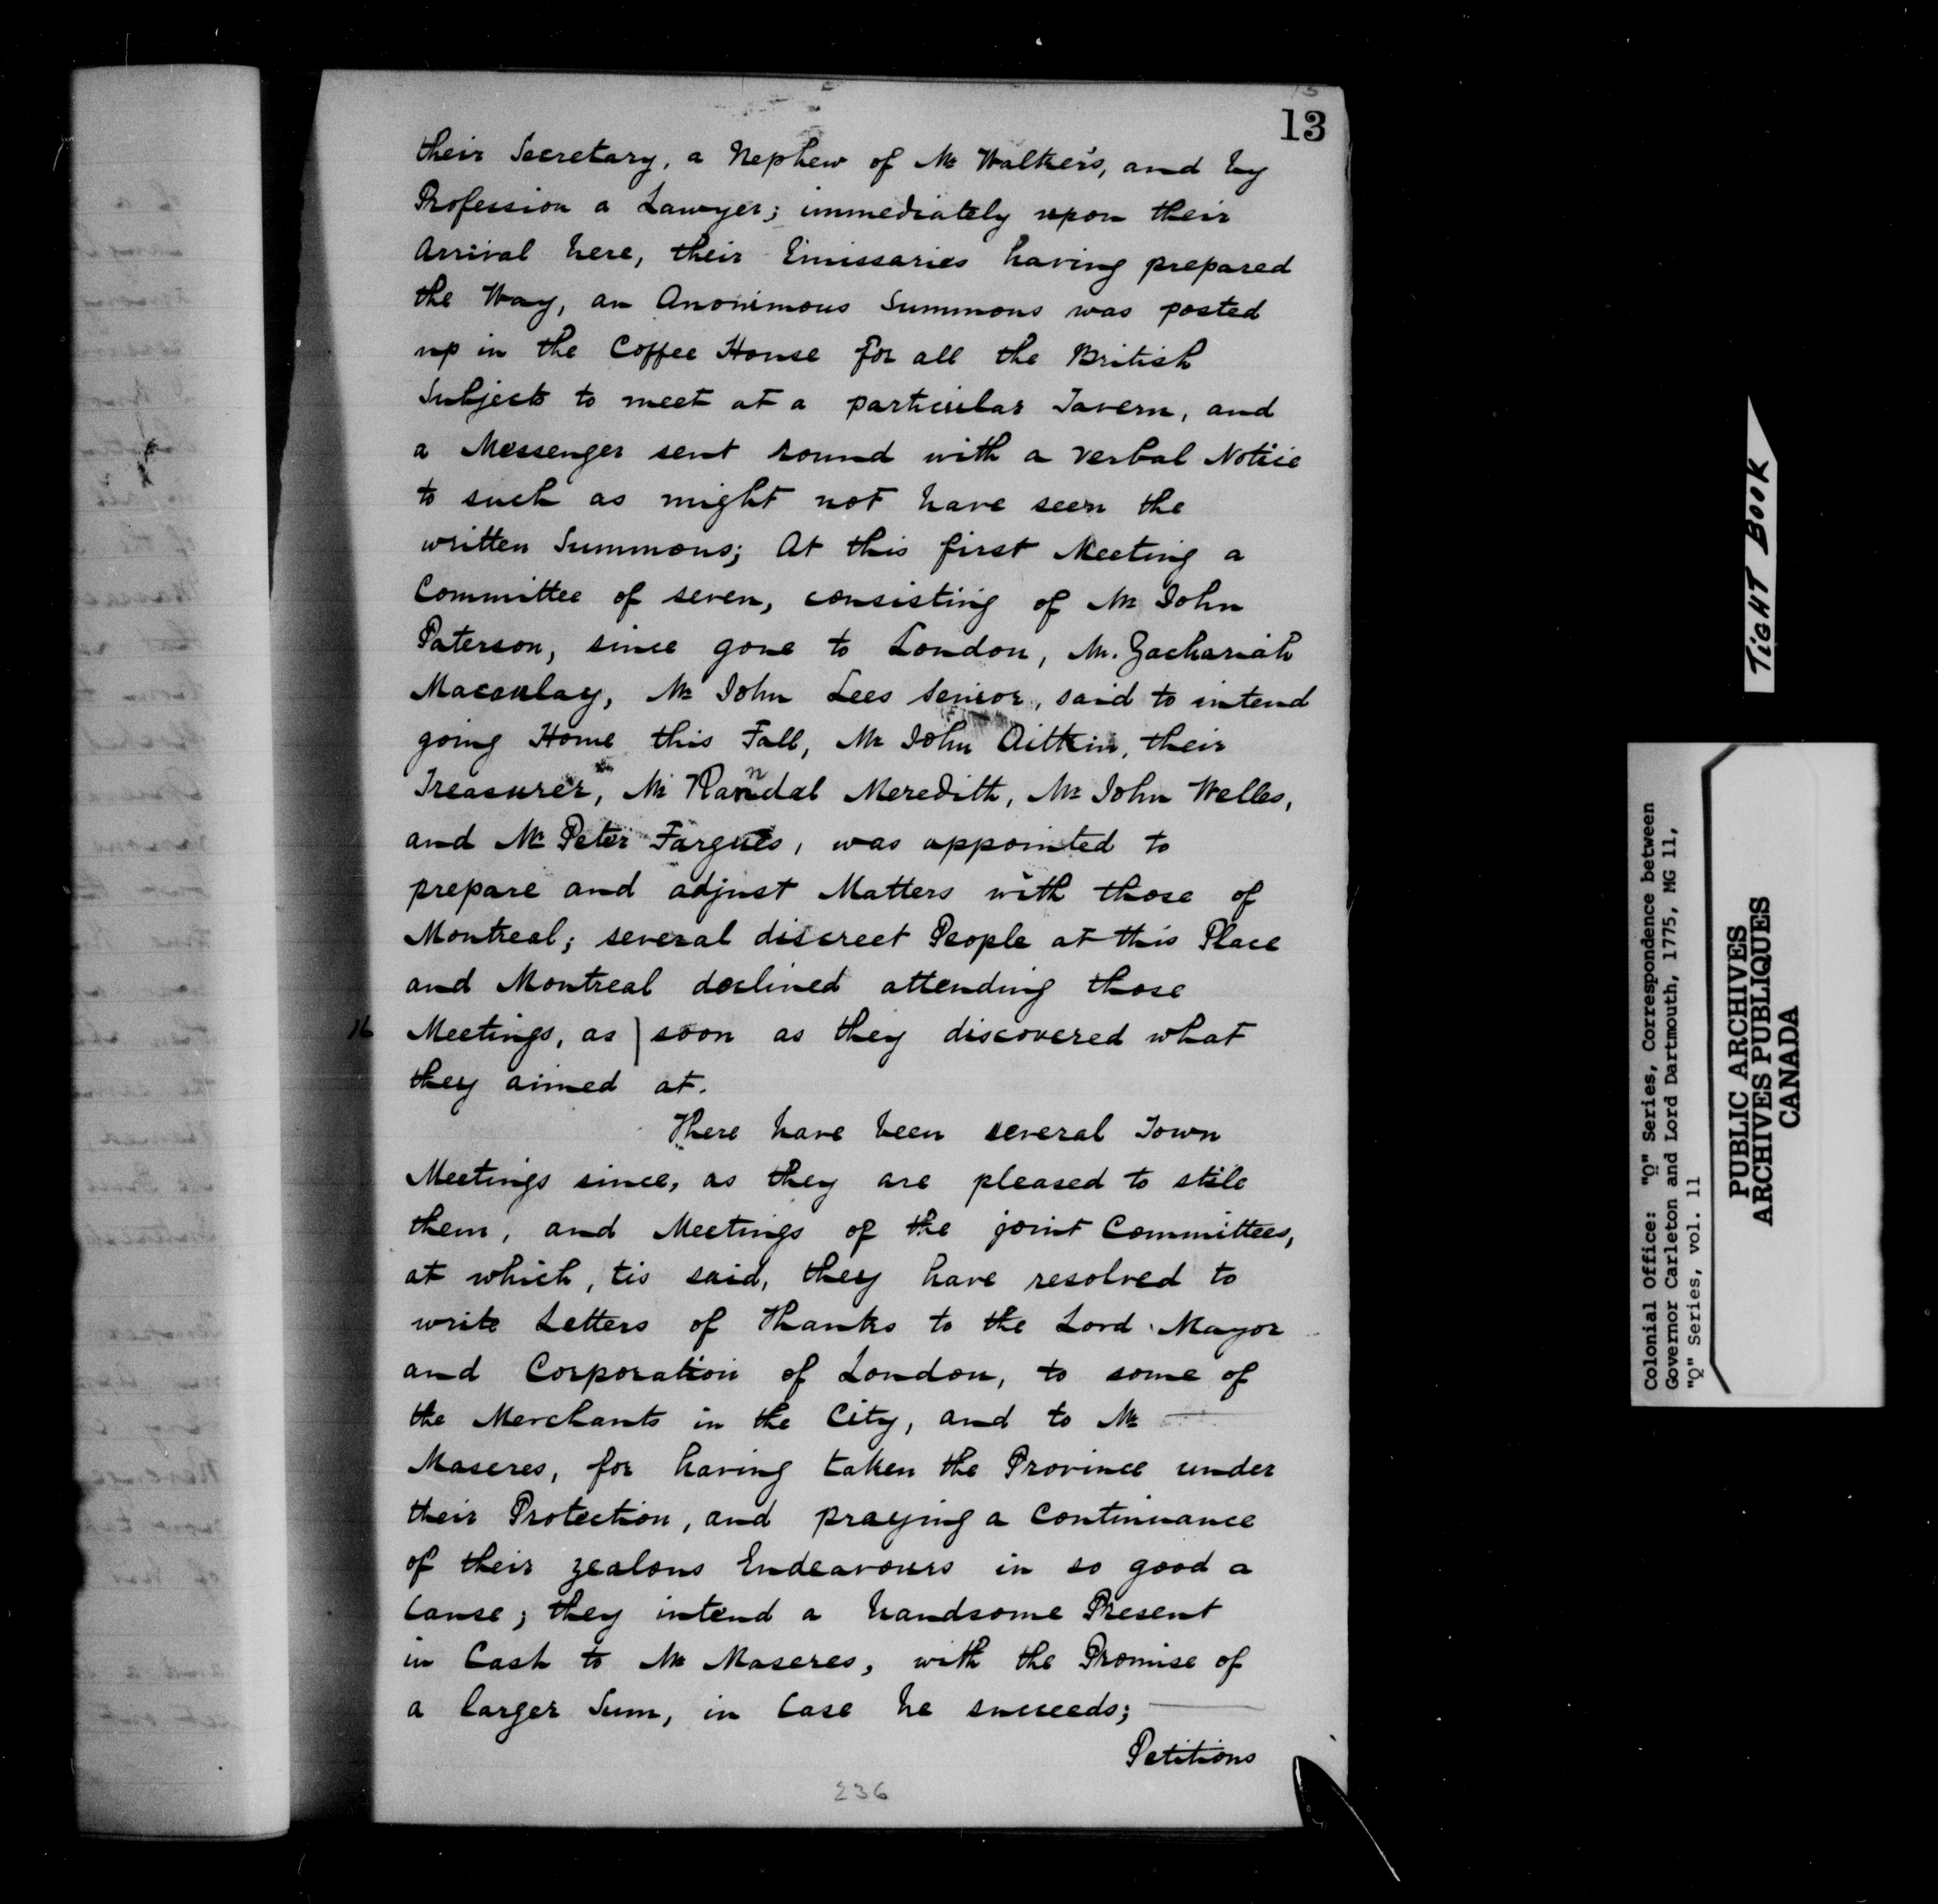 13
their Secretary, a Nephew of Mr Walker's, and by
Profession a Lawyer; immediately upon their
Arrival here, their Emissaries having prepared
the Way, an Anonimous Summons was posted
up in the Coffee House for all the British
Subjects to meet at a particular Tavern, and
a Messenger sent round with a verbal Notice
to such as might not have seen the
written Summons; At this first Meeting a
Committee of seven, consisting of Mr John
Paterson, since gone to London, Mr. Zachariah
Macaulay, Mr John Lees Senior, said to intend
going Home this Fall, Mr John Aitkin, their
Treasurer, Mr Randal Meredith, Mr John Welles,
and Mr Peter Fargues, was appointed to
prepare and adjust Matters with those of
Montreal; several discreet People at this Place
and Montreal declined attending those
16 Meetings, as | soon as they discovered what
they aimed at.
There have been several Town
Meetings since, as they are pleased to stile
them, and Meetings of the joint Committees,
at which, tis said, they have resolved to
write Letters of Thanks to the Lord Mayor
and Corporation of London, to some of
the Merchants in the City, and to Mr
Maseres, for having taken the Province under
their Protection, and praying a Continuance
of their zealous Endeavours in so good a
Cause; they intend a handsome Present
in Cash to Mr Maseres, with the Promise of
a larger Sum, in Case he succeeds;
Petitions
236
TIGHT BOOK
Colonial Office: "Q" Series, Correspondence between
Governor Carleton and Lord Dartmouth, 1775, MG 11,
"Q" Series, vol. 11
PUBLIC ARCHIVES
ARCHIVES PUBLIQUES
CANADA